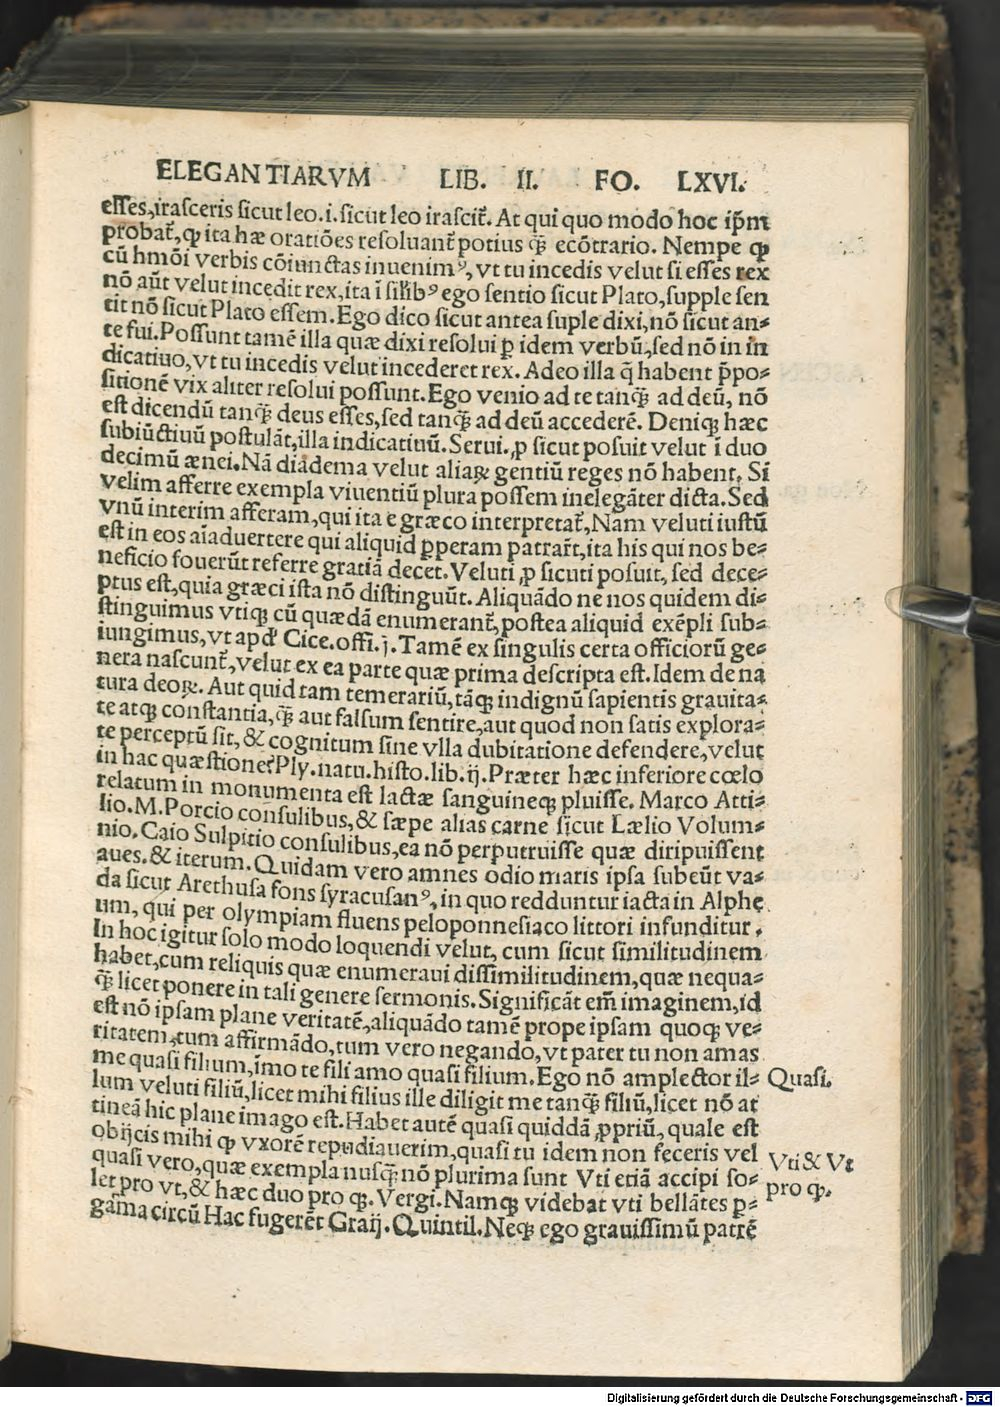 ELEGANTIARVM LIB. II. FO. LXVI.
eſſes, iraſceris ſicut leo .i. ſicut leo iraſcit᷑. At qui quo modo hoc ip̃m
probat᷑, ꝙ ita hæ oratiões reſoluant᷑ potius q̃ꝫ ecõtrario. Nempe ꝙ
cũ hmõi verbis cõiunctas inuenimꝰ, vt tu incedis velut ſi eſſes rex
nõ aũt velut incedit rex, ita ĩ ſiłibꝰ ego ſentio ſicut Plato, ſupple ſen
tit nõ ſicut Plato eſſem. Ego dico ſicut antea ſuple dixi, nõ ſicut an⸗
te fui. Poſſunt tamẽ illa quæ dixi reſolui ꝑ idem verbũ, ſed nõ in in
dicatiuo, vt tu incedis velut incederet rex. Adeo illa q̃ habent p̃po⸗
ſitionẽ vix aliter reſolui poſſunt. Ego venio ad te tanq̃ꝫ ad deũ, nõ
eſt dicendũ tanq̃ꝫ deus eſſes, ſed tanq̃ꝫ ad deũ accederẽ. Deniqꝫ hæc
ſubiũctiuũ poſtulãt, illa indicatiuũ. Serui. ꝓ ſicut poſuit velut ĩ duo
decimũ ænei. Nã diadema velut aliaꝝ gentiũ reges nõ habent. Si
velim afferre exempla viuentiũ plura poſſem inelegãter dicta. Sed
vnũ interim afferam, qui ita e græco interpretat᷑, Nam veluti iuſtũ
eſt in eos aĩaduertere qui aliquid ꝑperam patrar̃t, ita his qui nos be⸗
neficio fouerũt referre gratiã decet. Veluti ꝓ ſicuti poſuit, ſed dece⸗
ptus eſt, quia græci iſta nõ diſtinguũt. Aliquãdo ne nos quidem di⸗
ſtinguimus vtiqꝫ cũ quædã enumerant᷑, poſtea aliquid exẽpli ſub⸗
iungimus, vt apd᷑ Cice. offi. j. Tamẽ ex ſingulis certa officiorũ ge⸗
nera naſcunt᷑, velut ex ea parte quæ prima deſcripta eſt. Idem de na
tura deoꝝ. Aut quid tam temerariũ, tãqꝫ indignũ ſapientis grauita⸗
te atqꝫ conſtantia, q̃ꝫ aut falſum ſentire, aut quod non ſatis explora⸗
te perceptũ ſit, & cognitum ſine vlla dubitatione defendere, velut
in hac quæſtione? Ply. natu. hiſto. lib. ij. Præter hæc inferiore cœlo
relatum in monumenta eſt lactæ ſanguineqꝫ pluiſſe. Marco Atti⸗
lio. M. Porcio conſulibus, & ſæpe alias carne ſicut Lælio Volum⸗
nio. Caio Sulpitio conſulibus, ea nõ perputruiſſe quæ diripuiſſent
aues. & iterum. Quidam vero amnes odio maris ipſa ſubeũt va⸗
da ſicut Arethuſa fons ſyracuſanꝰ, in quo redduntur iacta in Alphe
um, qui per olympiam fluens peloponneſiaco littori infunditur.
In hoc igitur ſolo modo loquendi velut, cum ſicut ſimilitudinem
habet, cum reliquis quæ enumeraui diſſimilitudinem, quæ nequa⸗
q̃ꝫ licet ponere in tali genere ſermonis. Significãt em̃ imaginem, id
eſt nõ ipſam plane veritatẽ, aliquãdo tamẽ prope ipſam quoqꝫ ve⸗
ritatem, tum affirmãdo, tum vero negando, vt pater tu non amas
me quaſi filium, ĩmo te fili amo quaſi filium. Ego nõ amplector il⸗
lum veluti filiũ, licet mihi filius ille diligit me tanq̃ꝫ filiũ, licet nõ at
tineã hic plane imago eſt. Habet autẽ quaſi quiddã ꝓpriũ, quale eſt
obijcis mihi ꝙ vxorẽ repudiauerim, quaſi tu idem non feceris vel
quaſi vero, quæ exempla nuſq̃ꝫ nõ plurima ſunt Vti etiã accipi ſo⸗
let pro vt, & hæc duo pro ꝙ. Vergi. Namqꝫ videbat vti bellãtes ꝑ⸗
gama circũ Hac fugerẽt Graij. Quintil. Neqꝫ ego grauiſſimũ patrẽ
Quaſi.
Vti & Vt
pro ꝙ.
Digitalisierung gefördert durch die Deutsche Forschungsgemeinschaft - DFG